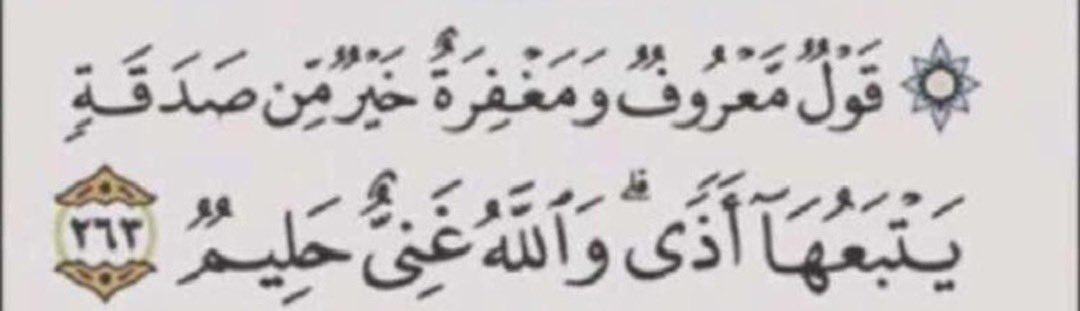 ۞ قَوْلٌ مَّعْرُوفٌ وَمَغْفِرَةٌ خَيْرٌ مِّن صَدَقَةٍ
يَتْبَعُهَآ أَذًى ۗ وَٱللَّهُ غَنِىٌّ حَلِيمٌ ٢٦٣